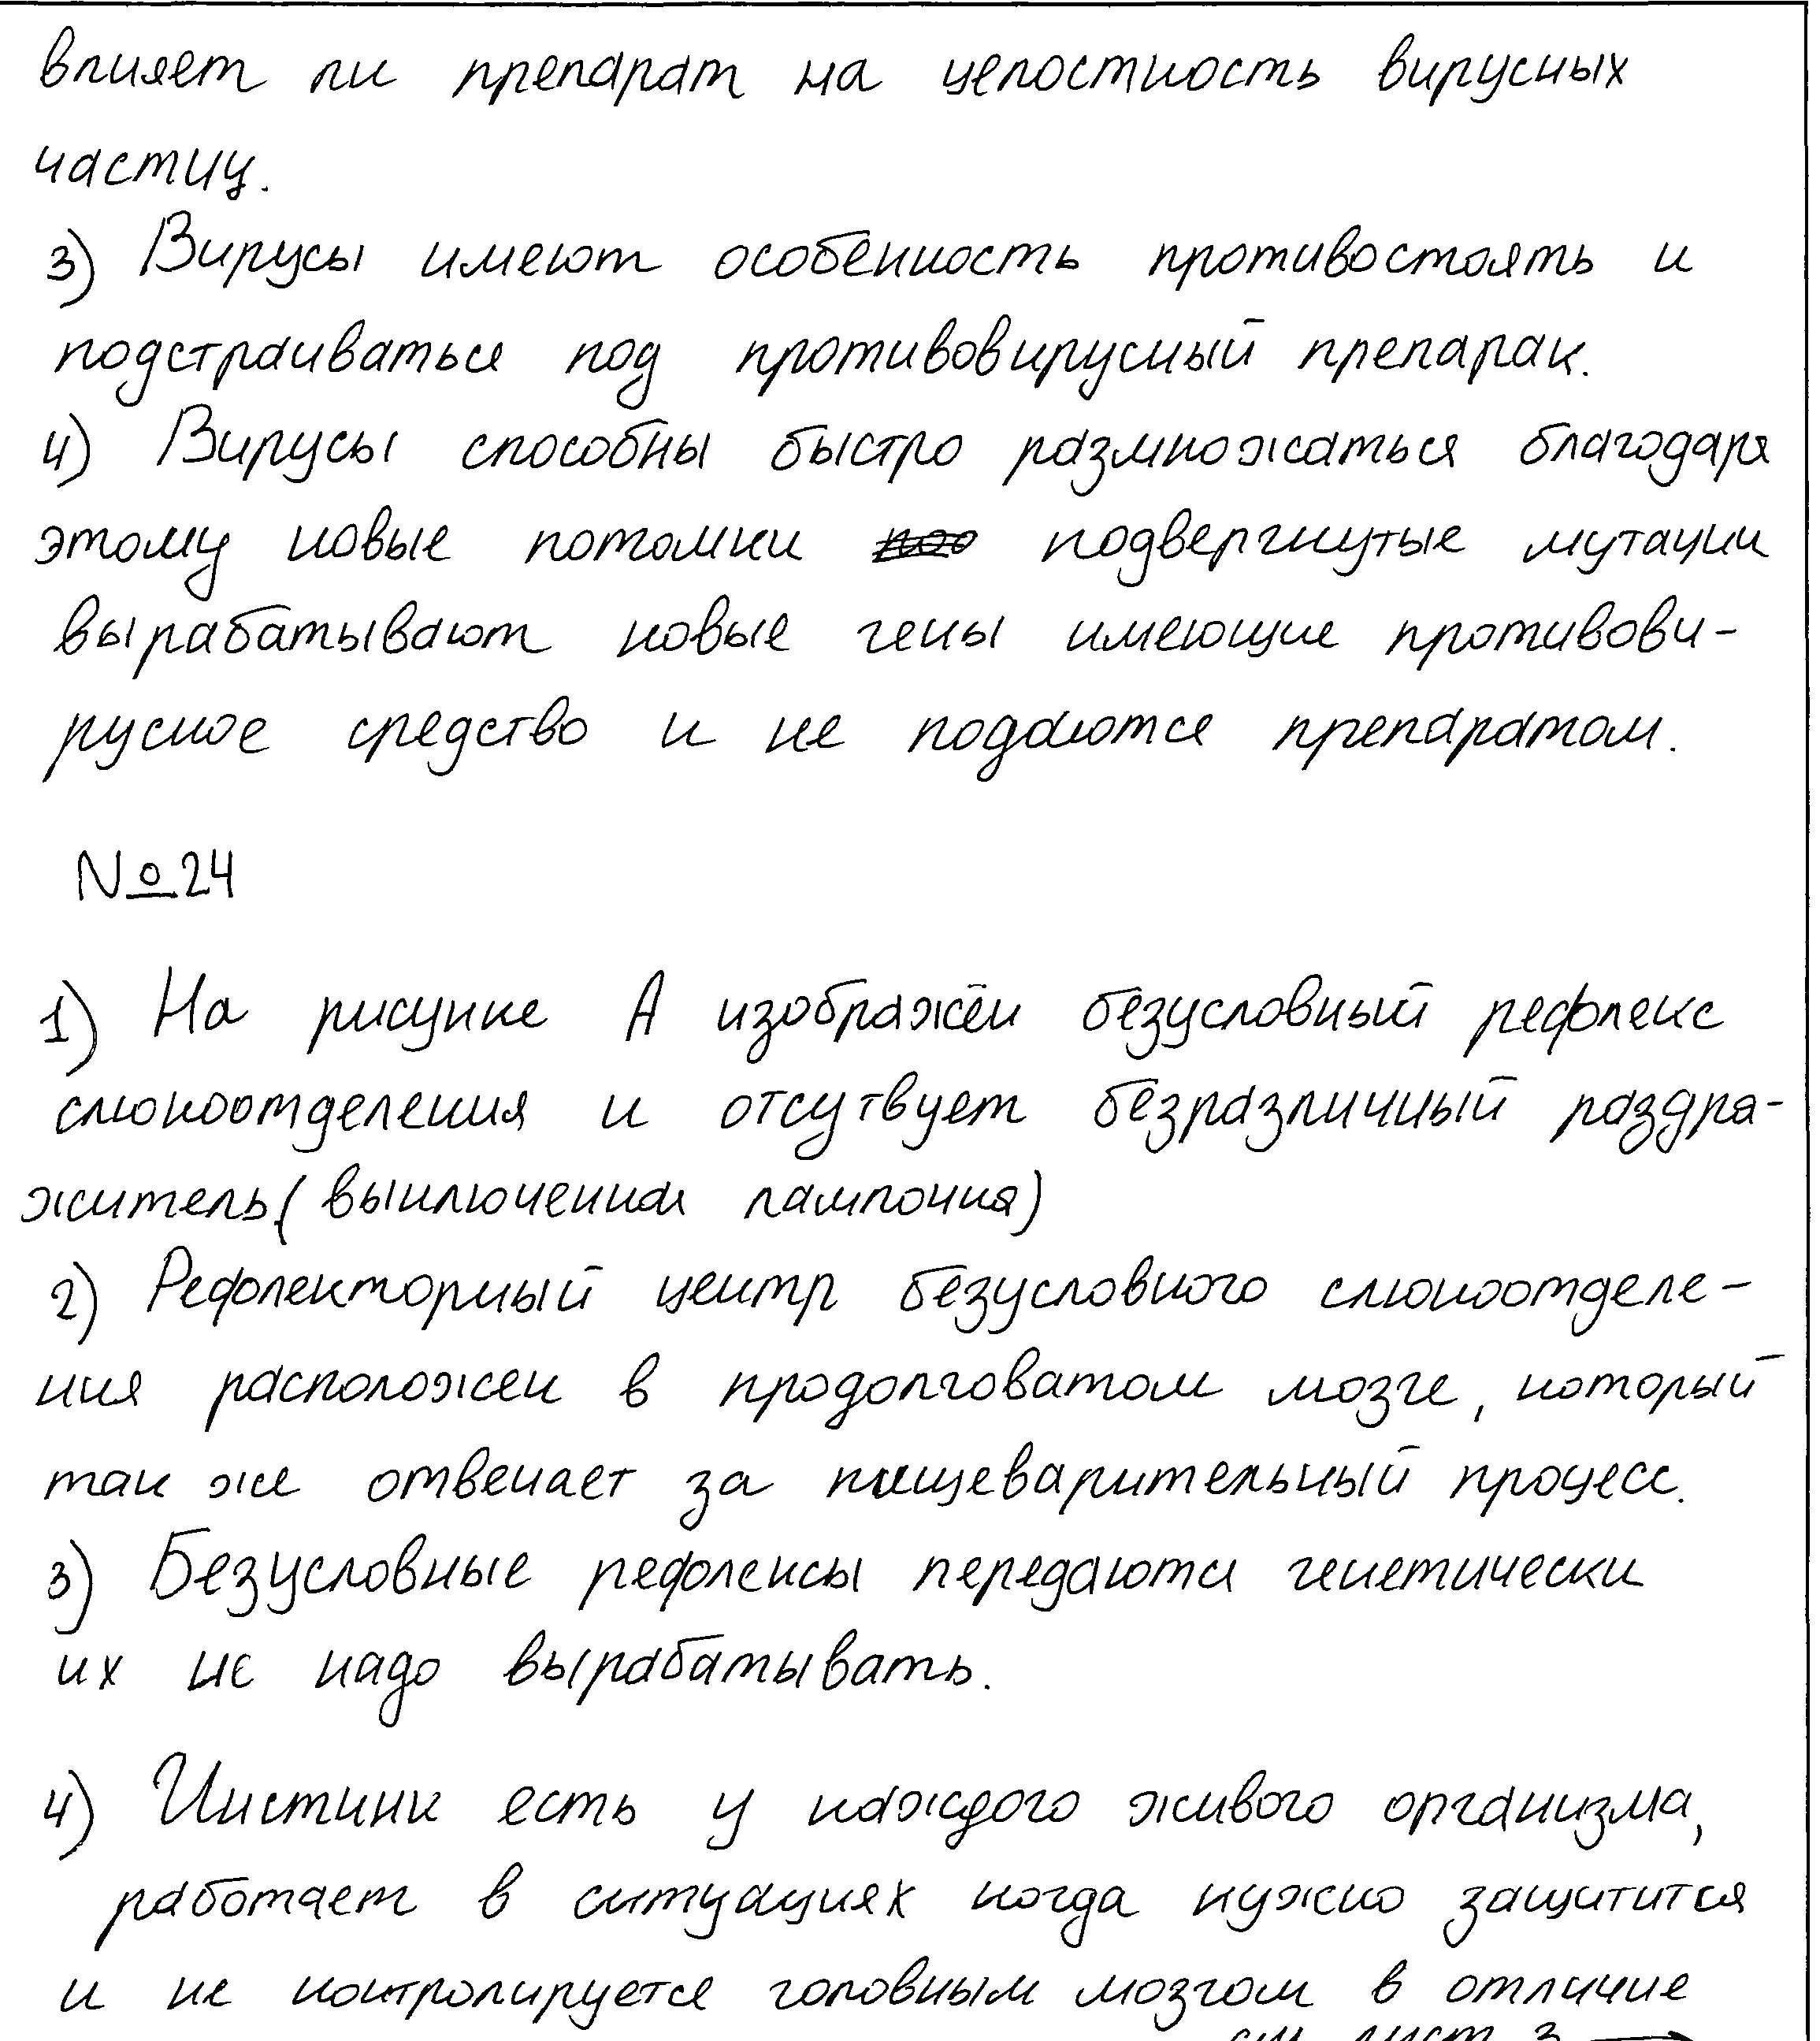 влияет ли препарат на целостность вирусных
частиц.
3) Вирусы имеют особенность противостоять и
подстраиваться под противовирусный препарак.
4) Вирусы способны быстро размножаться благодаря
этому новые потомки подвергнутые мутации
вырабатывают новые гены имеющие противови-
русное средство и не подаются препаратом.
№24
1) На рисунке А изображён безусловный рефлекс
слюноотделения и отсутвует безразличный раздра-
житель (выключенная лампочка)
2) Рефлекторный центр безусловного слюноотделе-
ния расположен в продолговатом мозге, который
так же отвечает за пищеварительный процесс.
3) Безусловные рефлексы передаются генетически
их не надо вырабатывать.
4) Инстинк есть у каждого живого организма,
работает в ситуациях когда нужно защитится
и не контролируется головным мозгом в отличие
см. лист 3 →